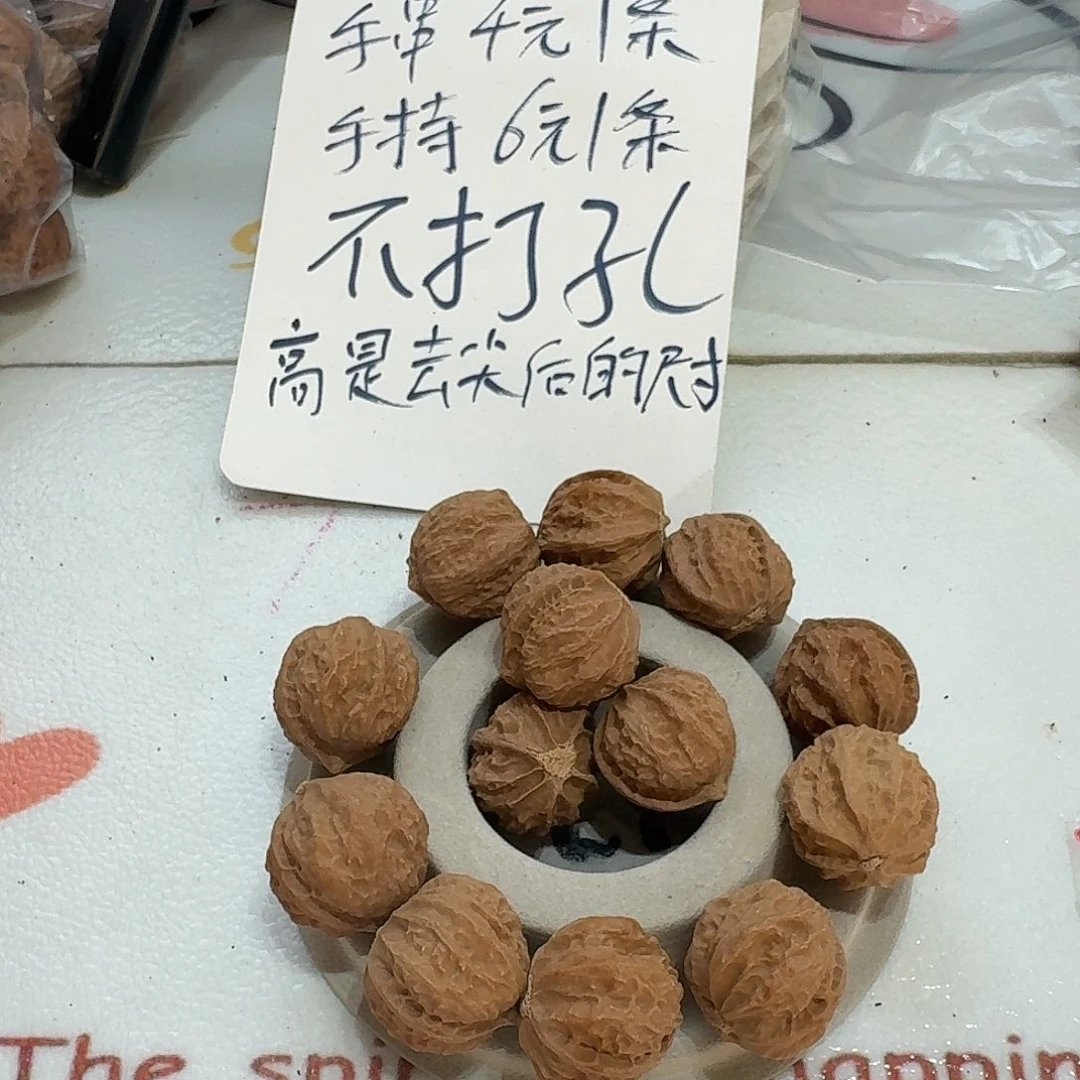 手串 4元1条
手持 6元1条
不打孔
高是去尖后的尺寸
The spi